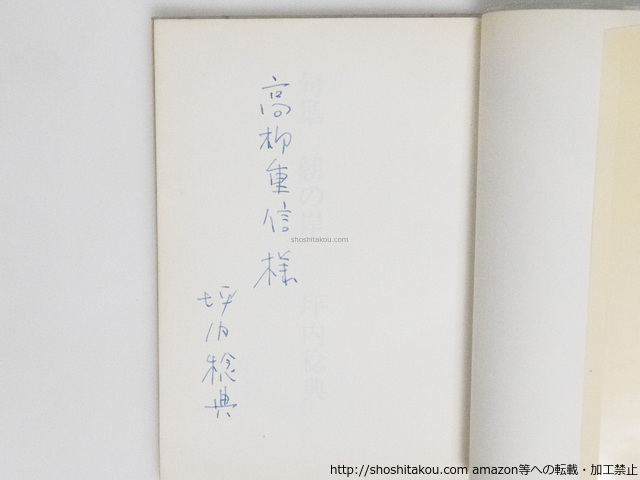 高柳重信様
坪内稔典
句集 朝の岸
坪内稔典
shoshitakou.com
http://shoshitakou.com amazon等への転載・加工禁止